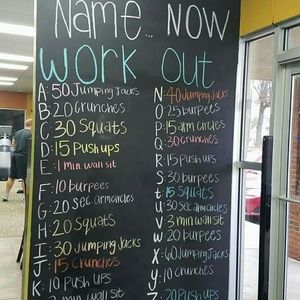 Name... Now
Work out
A: 50 Jumping Jacks
B: 20 Crunches
C: 30 Squats
D: 15 Push ups
E: 1 min wall sit
F: 10 burpees
G: 20 sec. arm circles
H: 20 Squats
I: 30 Jumping Jacks
J: 15 Crunches
K: 10 Push ups
min wall sit
N: 40 Jumping Jacks
O: 25 burpees
P: 15 arm circles
Q: 30 crunches
R: 15 Push ups
S: 30 burpees
t: 15 Squats
U: 30 sec arm circles
V: 3 min wall sit
W: 20 burpees
X: 60 Jumping Jacks
Y: 10 crunches
Z: 20 Push ups